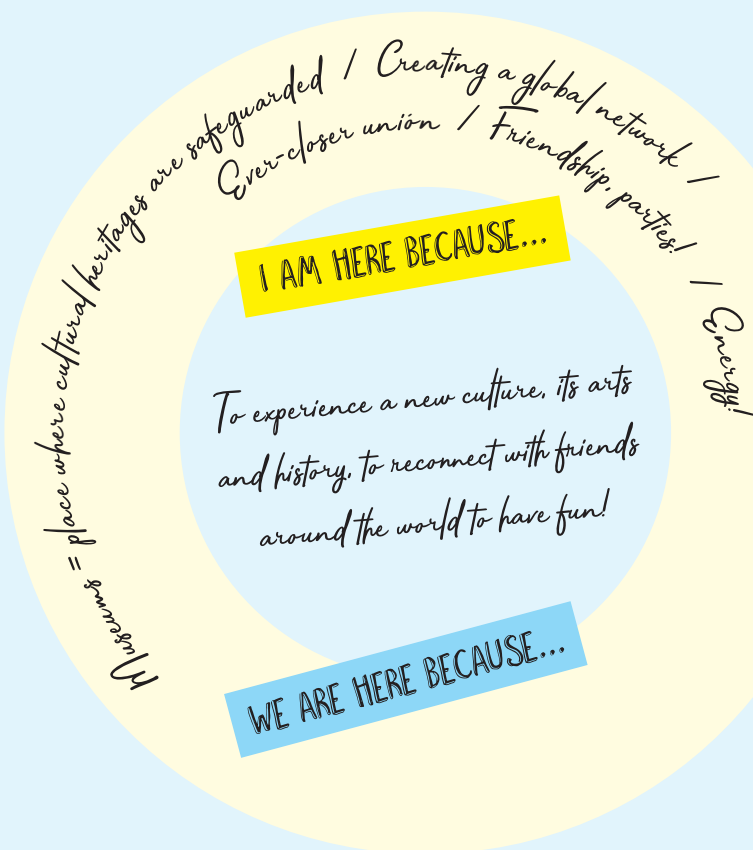 Museums = place where cultural heritages are safeguarded / Creating a global network /
Ever-closer union / Friendship, parties! / Energy!
I AM HERE BECAUSE...
To experience a new culture, its arts
and history, to reconnect with friends
around the world to have fun!
WE ARE HERE BECAUSE...